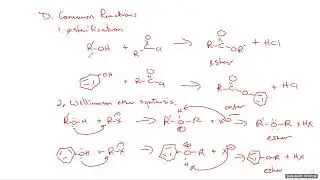 D. Common Reactions
1. esterification
R'-OH + R-C(=O)-Cl → R-C(=O)-OR' + HCl
ester
OH + R-C(=O)-Cl → R-C(=O)-O + HCl
ester
2. Williamson ether synthesis
R'-ÖH + R-X → R'-O-R + X → R'-O-R + HX
H
ether
ÖH + R-X → O-R + X → O-R + HX
H
ether